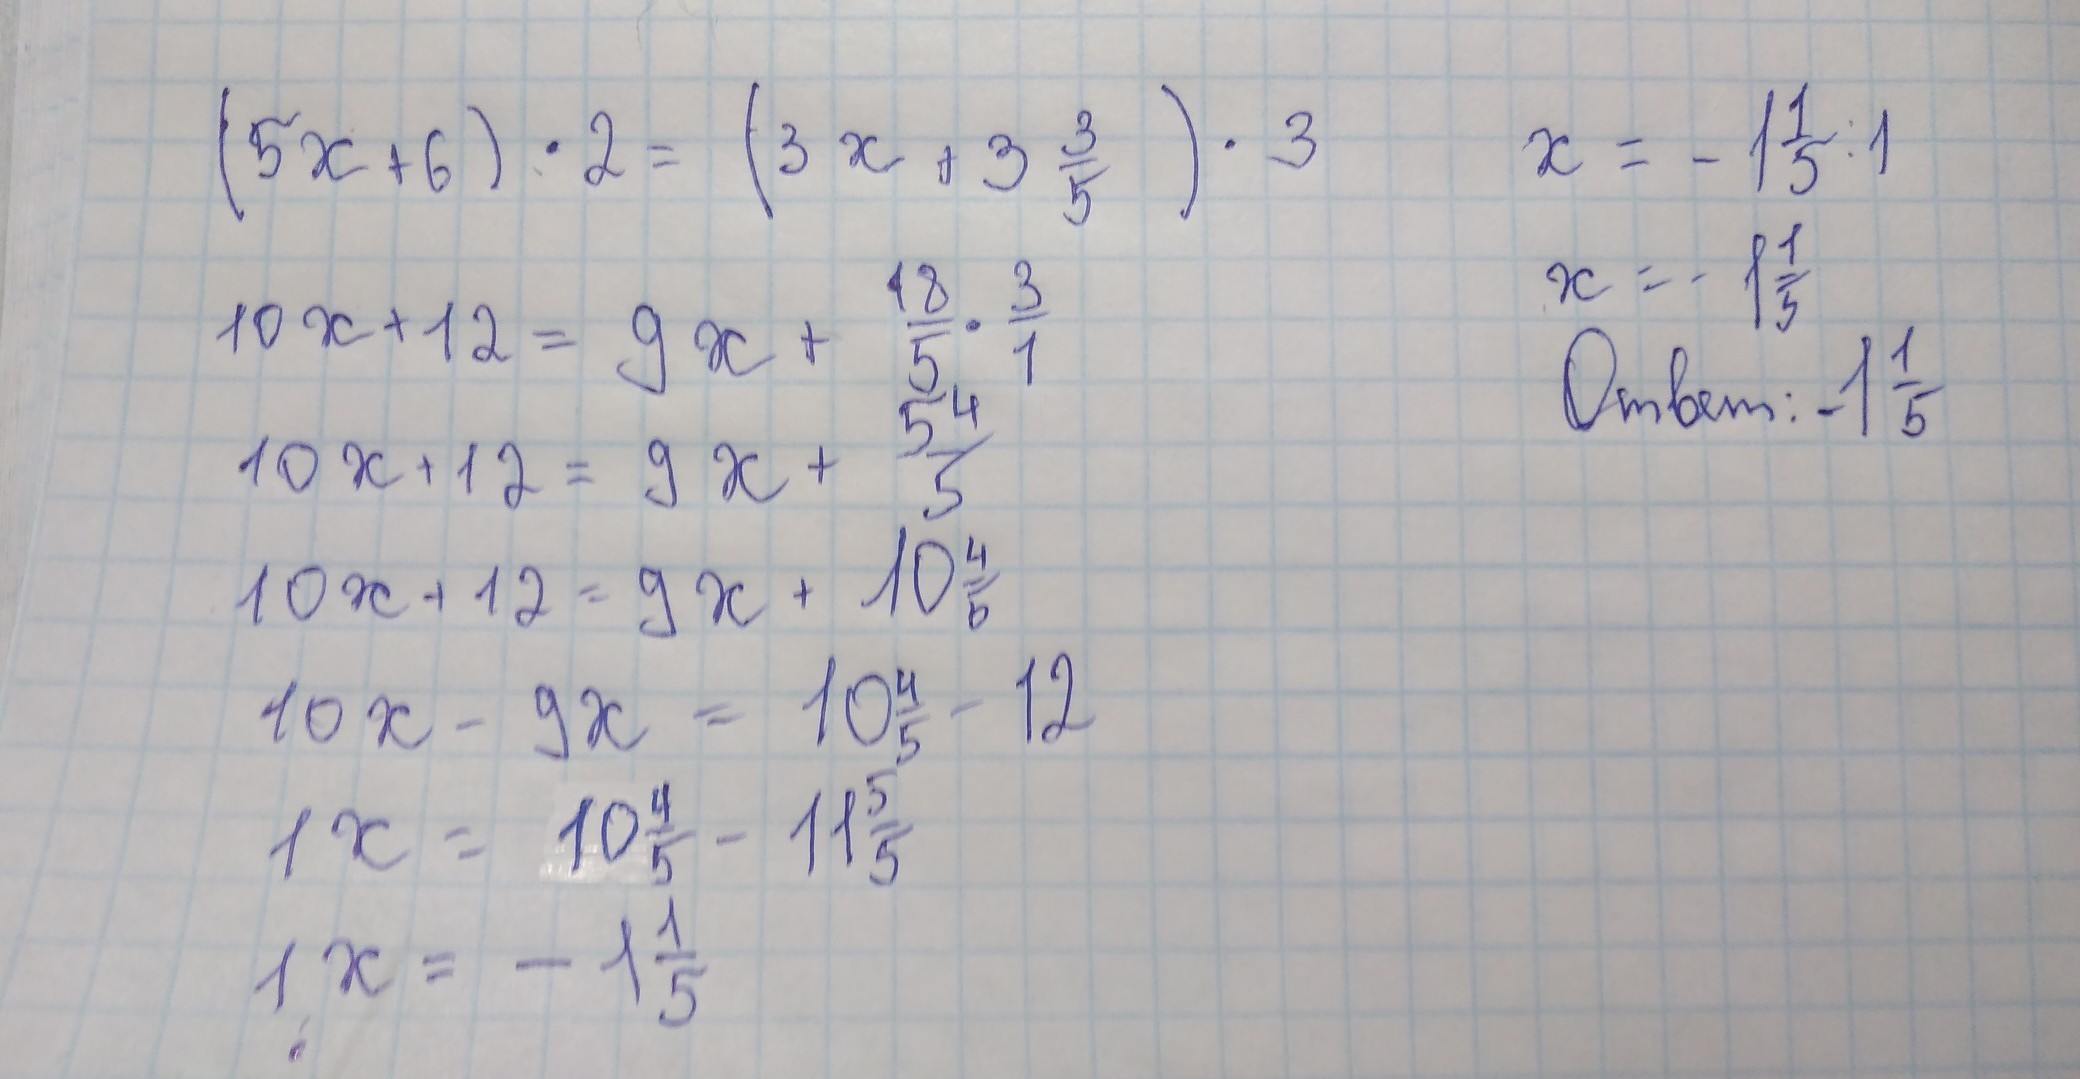 (5x+6)·2=(3x+3 3/5)·3
10x+12=9x+18/5·3/1
10x+12=9x+54/5
10x+12=9x+10 4/5
10x-9x=10 4/5-12
1x=10 4/5-11 5/5
1x=-1 1/5
x=-1 1/5:1
x=-1 1/5
Ответ:-1 1/5